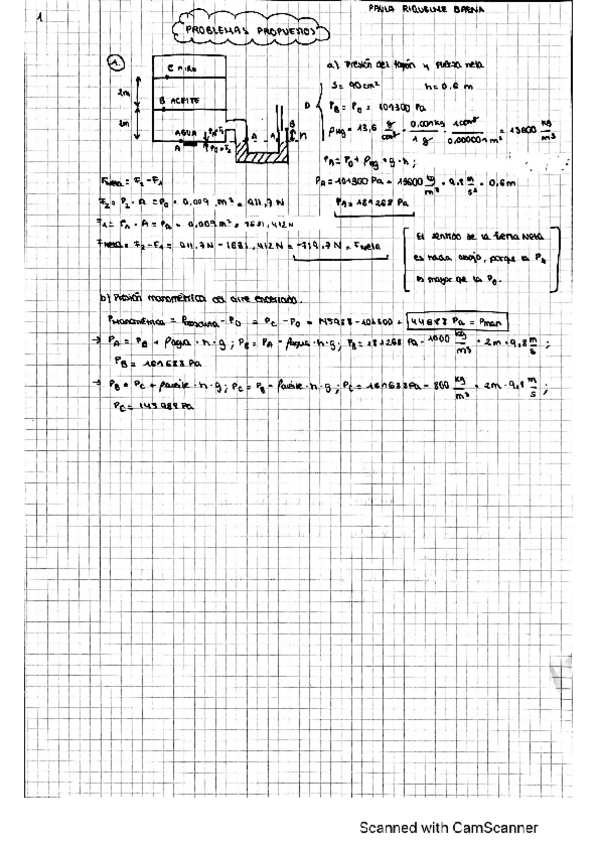 1
PAULA RIQUELME BAENA
PROBLEMAS PROPUESTOS
1.
a) Presión del tapón y fuerza neta
C AIRE
2m
B ACEITE
2m
AGUA
A
S = 90 cm² h = 0,6 m
P_B = P_0 = 101300 Pa
ρ_Hg = 13,6 g/cm³ · 0,001kg/1 g · 1cm³/0,000001 m³ = 13600 kg/m³
P_A = P_0 + ρ_Hg · g · h ;
P_A = 101300 Pa + 13600 kg/m³ · 9,8 m/s² · 0,6m
P_A = 181268 Pa
F_neta = F_2 - F_1
F_2 = P_2 · A = P_0 · 0,009 m² = 911,7 N
F_1 = P_1 · A = P_A · 0,009 m² = 1631,412 N
F_neta = F_2 - F_1 = 911,7 N - 1631,412 N = -719,7 N = F_neta
El sentido de la fuerza neta
es hacia abajo, porque la P_A
es mayor que la P_0.
b) Presión manométrica del aire encerrado.
P_manométrica = P_absoluta - P_0 = P_C - P_0 = 145988 - 101300 = 44688 Pa = P_man
→ P_A = P_B + ρ_agua · h · g ; P_B = P_A - ρ_agua · h · g ; P_B = 181268 Pa - 1000 kg/m³ · 2m · 9,8 m/s ;
P_B = 161668 Pa
→ P_B = P_C + ρ_aceite · h · g ; P_C = P_B - ρ_aceite · h · g ; P_C = 161668 Pa - 800 kg/m³ · 2m · 9,8 m/s ;
P_C = 145988 Pa
Scanned with CamScanner